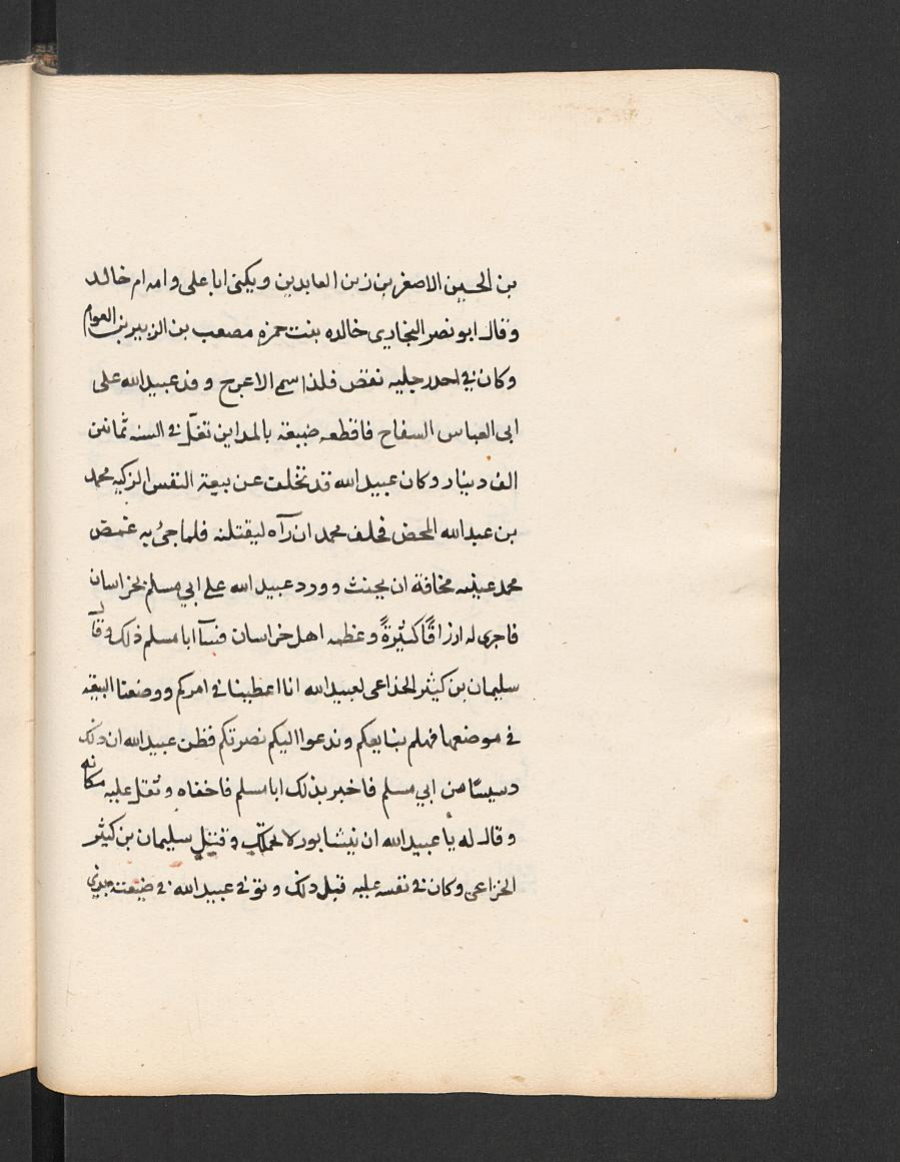 بن الحسين الاصغر بن زين العابدين ويكنى ابا على وامه ام خالد
وقال ابو نصر البخاري خالده بنت حمزه مصعب بن الزبير بن العوام
وكان في احد رجليه نقض فلذا سمى الاعرج وفد عبيدالله على
ابى العباس السفاح فاقطعه ضيعة بالمداين تغلّ في السنه ثمانين
الف دينار وكان عبيد الله قد تخلف عن بيعة النفس الزكيه محمد
بن عبدالله المحض فحلف محمد ان رآه ليقتلنه فلما جئ به غمض
محمد عينيه مخافة ان يحنث وورد عبيد الله على ابي مسلم بخراسان
فاجرى له ارزاقًا كثيرةً وعظمه اهل خراسان فسآ ابا مسلم ذلك وقال
سليمان بن كيثر الخذاعى لعبيد الله انا اعطينا في امركم ووضعنا البيعة
في موضعها فهلم نبايعكم وندعوا اليكم نصرتكم فظن عبيد الله ان ذلك
دسيسًا من ابي مسلم فاخبر بذلك ابا مسلم فاخفاه وثقل عليه مكانه
وقال له يا عبيد الله ان نيشابور لا تحملك وقتل سليمان بن كيثر
الخزاعى وكان في نفسه عليه قبل ذلك وتوفى عبيد الله في ضيعته